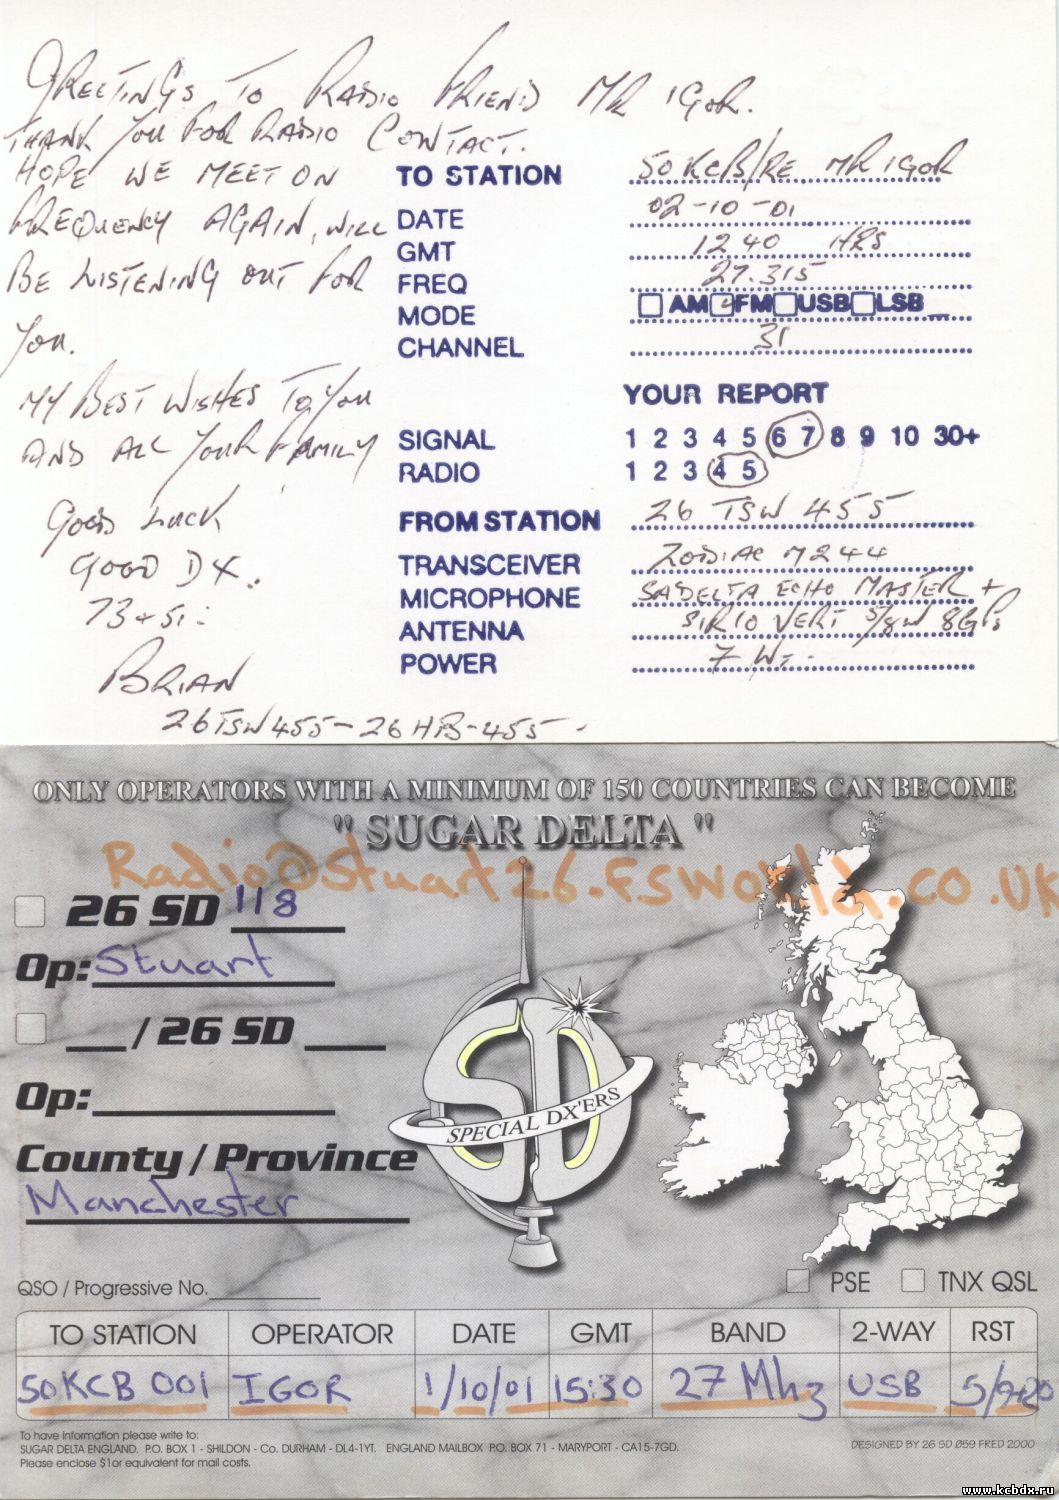 GREETINGS TO RADIO FRIEND MR IGOR.
THANK YOU FOR RADIO CONTACT.
HOPE WE MEET ON
FREQUENCY AGAIN, WILL
BE LISTENING OUT FOR
YOU.
MY BEST WISHES TO YOU
AND ALL YOUR FAMILY
GOOD LUCK
GOOD DX.
73+51:
BRIAN
26TSW455-26HB-455-
TO STATION 50KCB/RE MR IGOR
DATE 02-10-01
GMT 1240 HRS
FREQ 27.315
MODE AM FM USB LSB
CHANNEL 31
YOUR REPORT
SIGNAL 1 2 3 4 5 6 7 8 9 10 30+
RADIO 1 2 3 4 5
FROM STATION 26 TSW 455
TRANSCEIVER ZODIAC M244
MICROPHONE SADELTA ECHO MASTER +
ANTENNA SIRIO VERT 5/8W 8GPs
POWER 7 W.
ONLY OPERATORS WITH A MINIMUM OF 150 COUNTRIES CAN BECOME
" SUGAR DELTA "
Radio@Stuart26.fsworld.co.UK
26 SD 118
Op: Stuart
/ 26 SD
Op:
County / Province
Manchester
SD
SPECIAL DX'ERS
QSO / Progressive No.
PSE TNX QSL
TO STATION OPERATOR DATE GMT BAND 2-WAY RST
50KCB 001 IGOR 1/10/01 15:30 27 Mhz USB 5/9+20
To have information please write to:
SUGAR DELTA ENGLAND. P.O. BOX 1 - SHILDON - Co. DURHAM - DL4-1YT. ENGLAND MAILBOX P.O. BOX 71 - MARYPORT - CA15-7GD.
Please enclose $1or equivalent for mail costs.
DESIGNED BY 26 SD Ø59 FRED 2000
www.kcbdx.ru